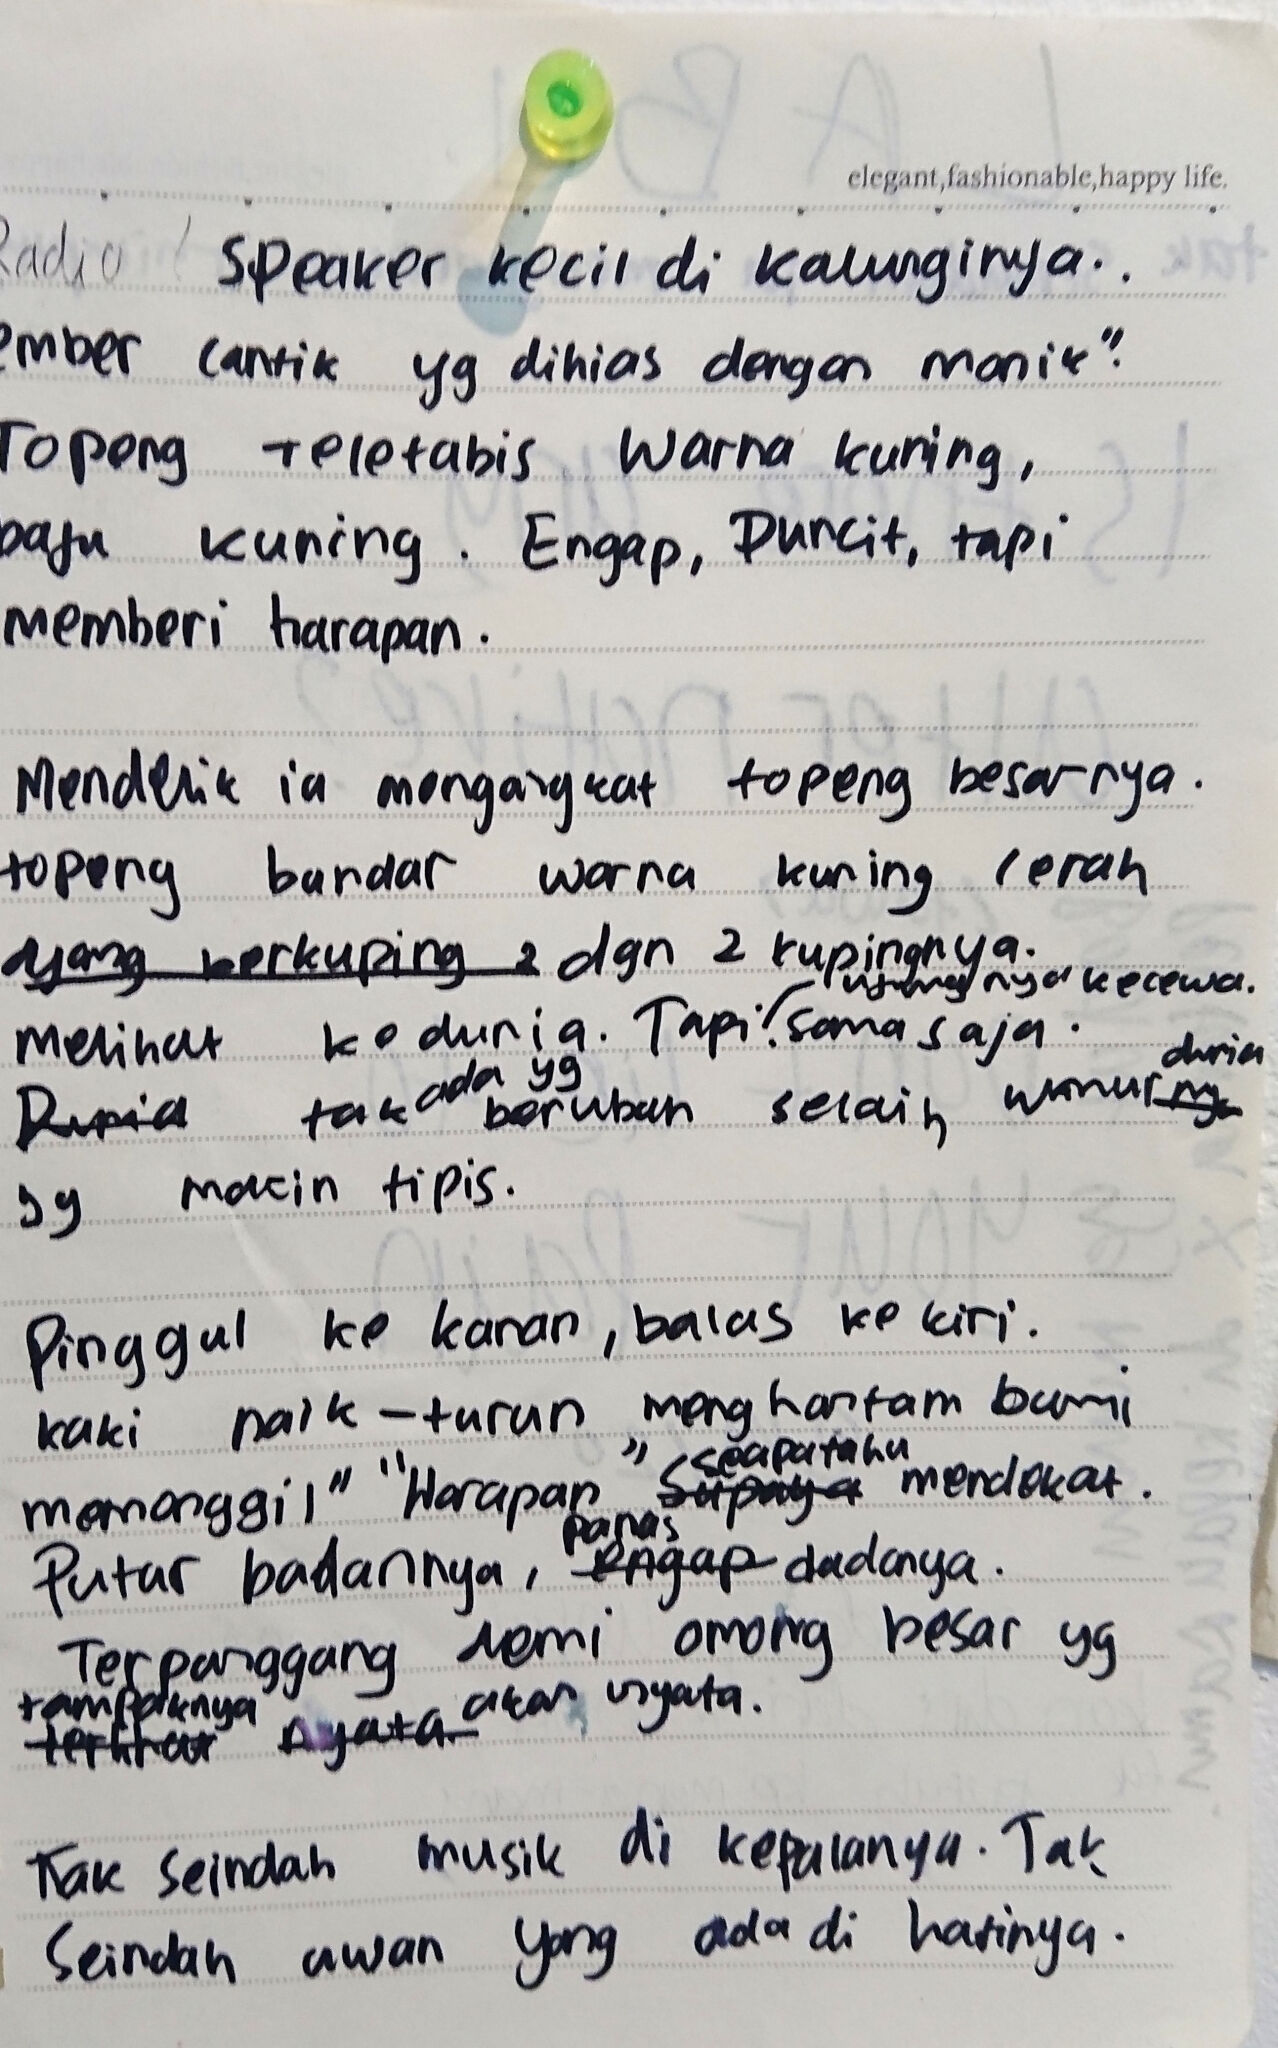 elegant,fashionable,happy life.
Radio / Speaker kecil di kalunginya..
ember cantik yg dihias dengan manik".
Topeng Teletabis Warna kuning,
baju kuning. Engap, Duncit, tapi
memberi harapan.
Mendelik ia mengangkat topeng besarnya.
topeng bundar warna kuning cerah
yang berkuping 2 dgn 2 kupingnya.
nya kecewa.
Melihat ke dunia. Tapi sama saja.
ada yg dunia
Dunia tak berubah selain
yg makin tipis.
Pinggul ke kanan, balas ke kiri.
kaki naik-turun menghantam bumi
seapatahu
memanggil" "Harapan" Supaya mendekat.
panas
Putar badannya, engap dadanya.
Terpanggang demi omong besar yg
tampaknya akan nyata.
terlihat nyata
Tak seindah musik di kepalanya. Tak
Seindah awan yang ada di hatinya.